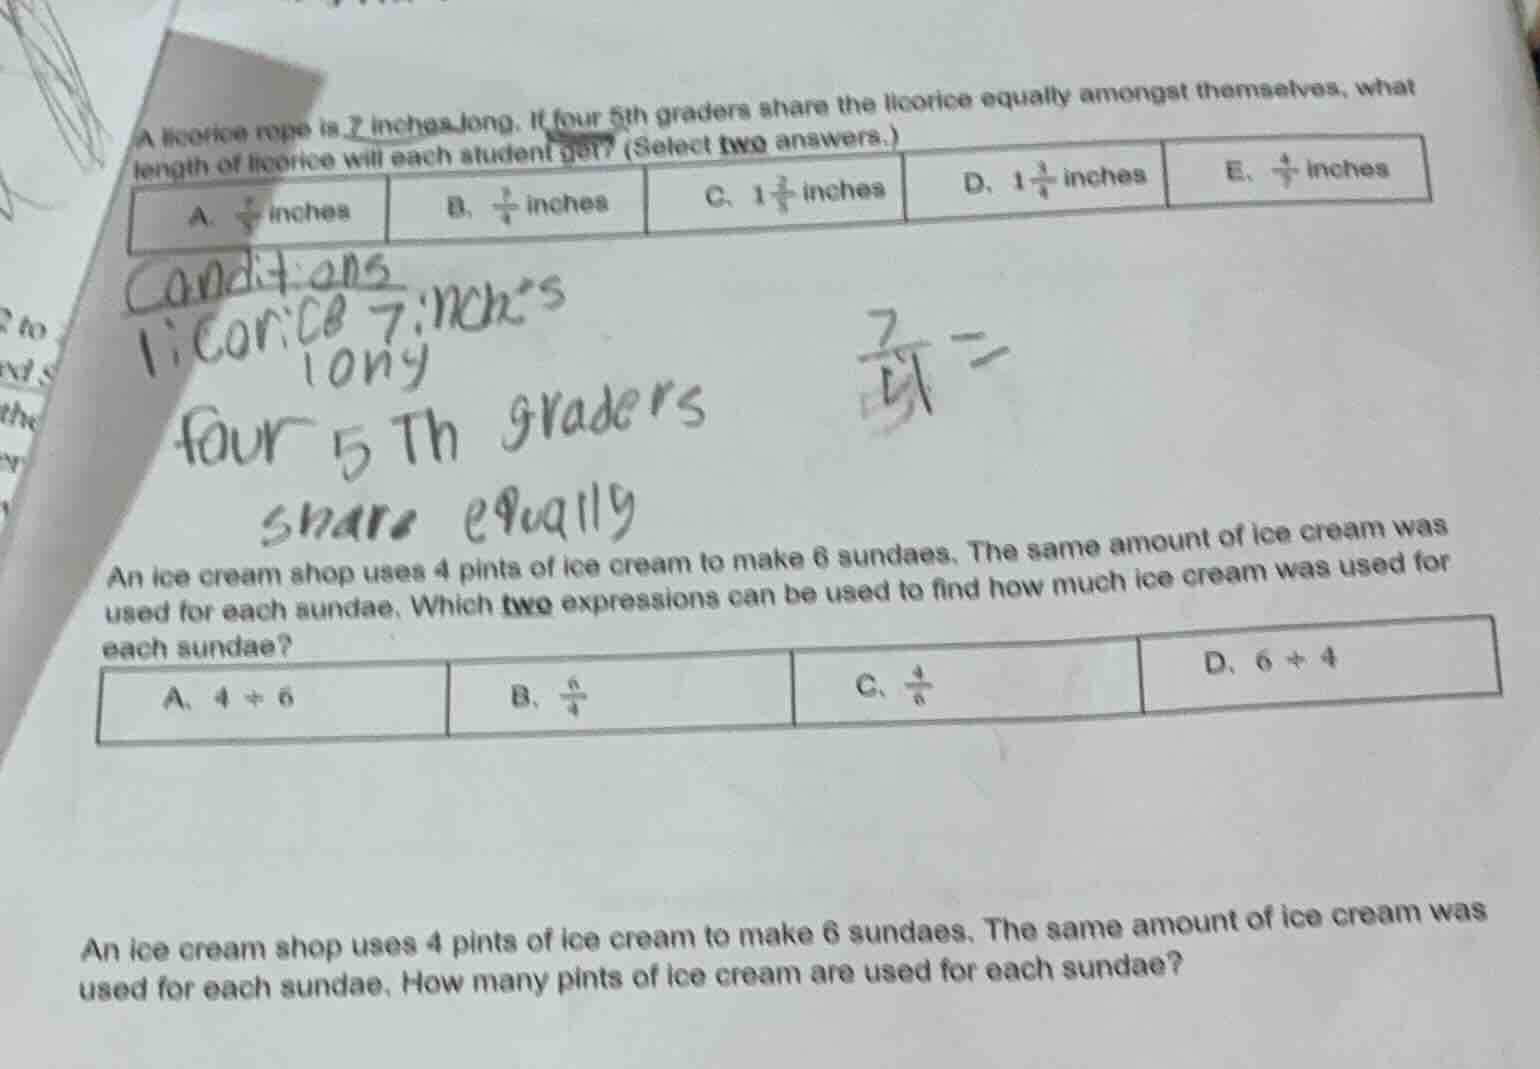 A licorice rope is 7 inches long. If four 5th graders share the licorice equally amongst themselves, what
length of licorice will each student get? (Select two answers.)
A. 7/5 inches B. 7/4 inches C. 1 2/5 inches D. 1 3/4 inches E. 4/7 inches
Conditions
licorice 7 inches
long
four 5 Th graders
share equally
7/4 =
An ice cream shop uses 4 pints of ice cream to make 6 sundaes. The same amount of ice cream was
used for each sundae. Which two expressions can be used to find how much ice cream was used for
each sundae?
A. 4 ÷ 6 B. 6/4 C. 4/6 D. 6 ÷ 4
An ice cream shop uses 4 pints of ice cream to make 6 sundaes. The same amount of ice cream was
used for each sundae. How many pints of ice cream are used for each sundae?
to
the